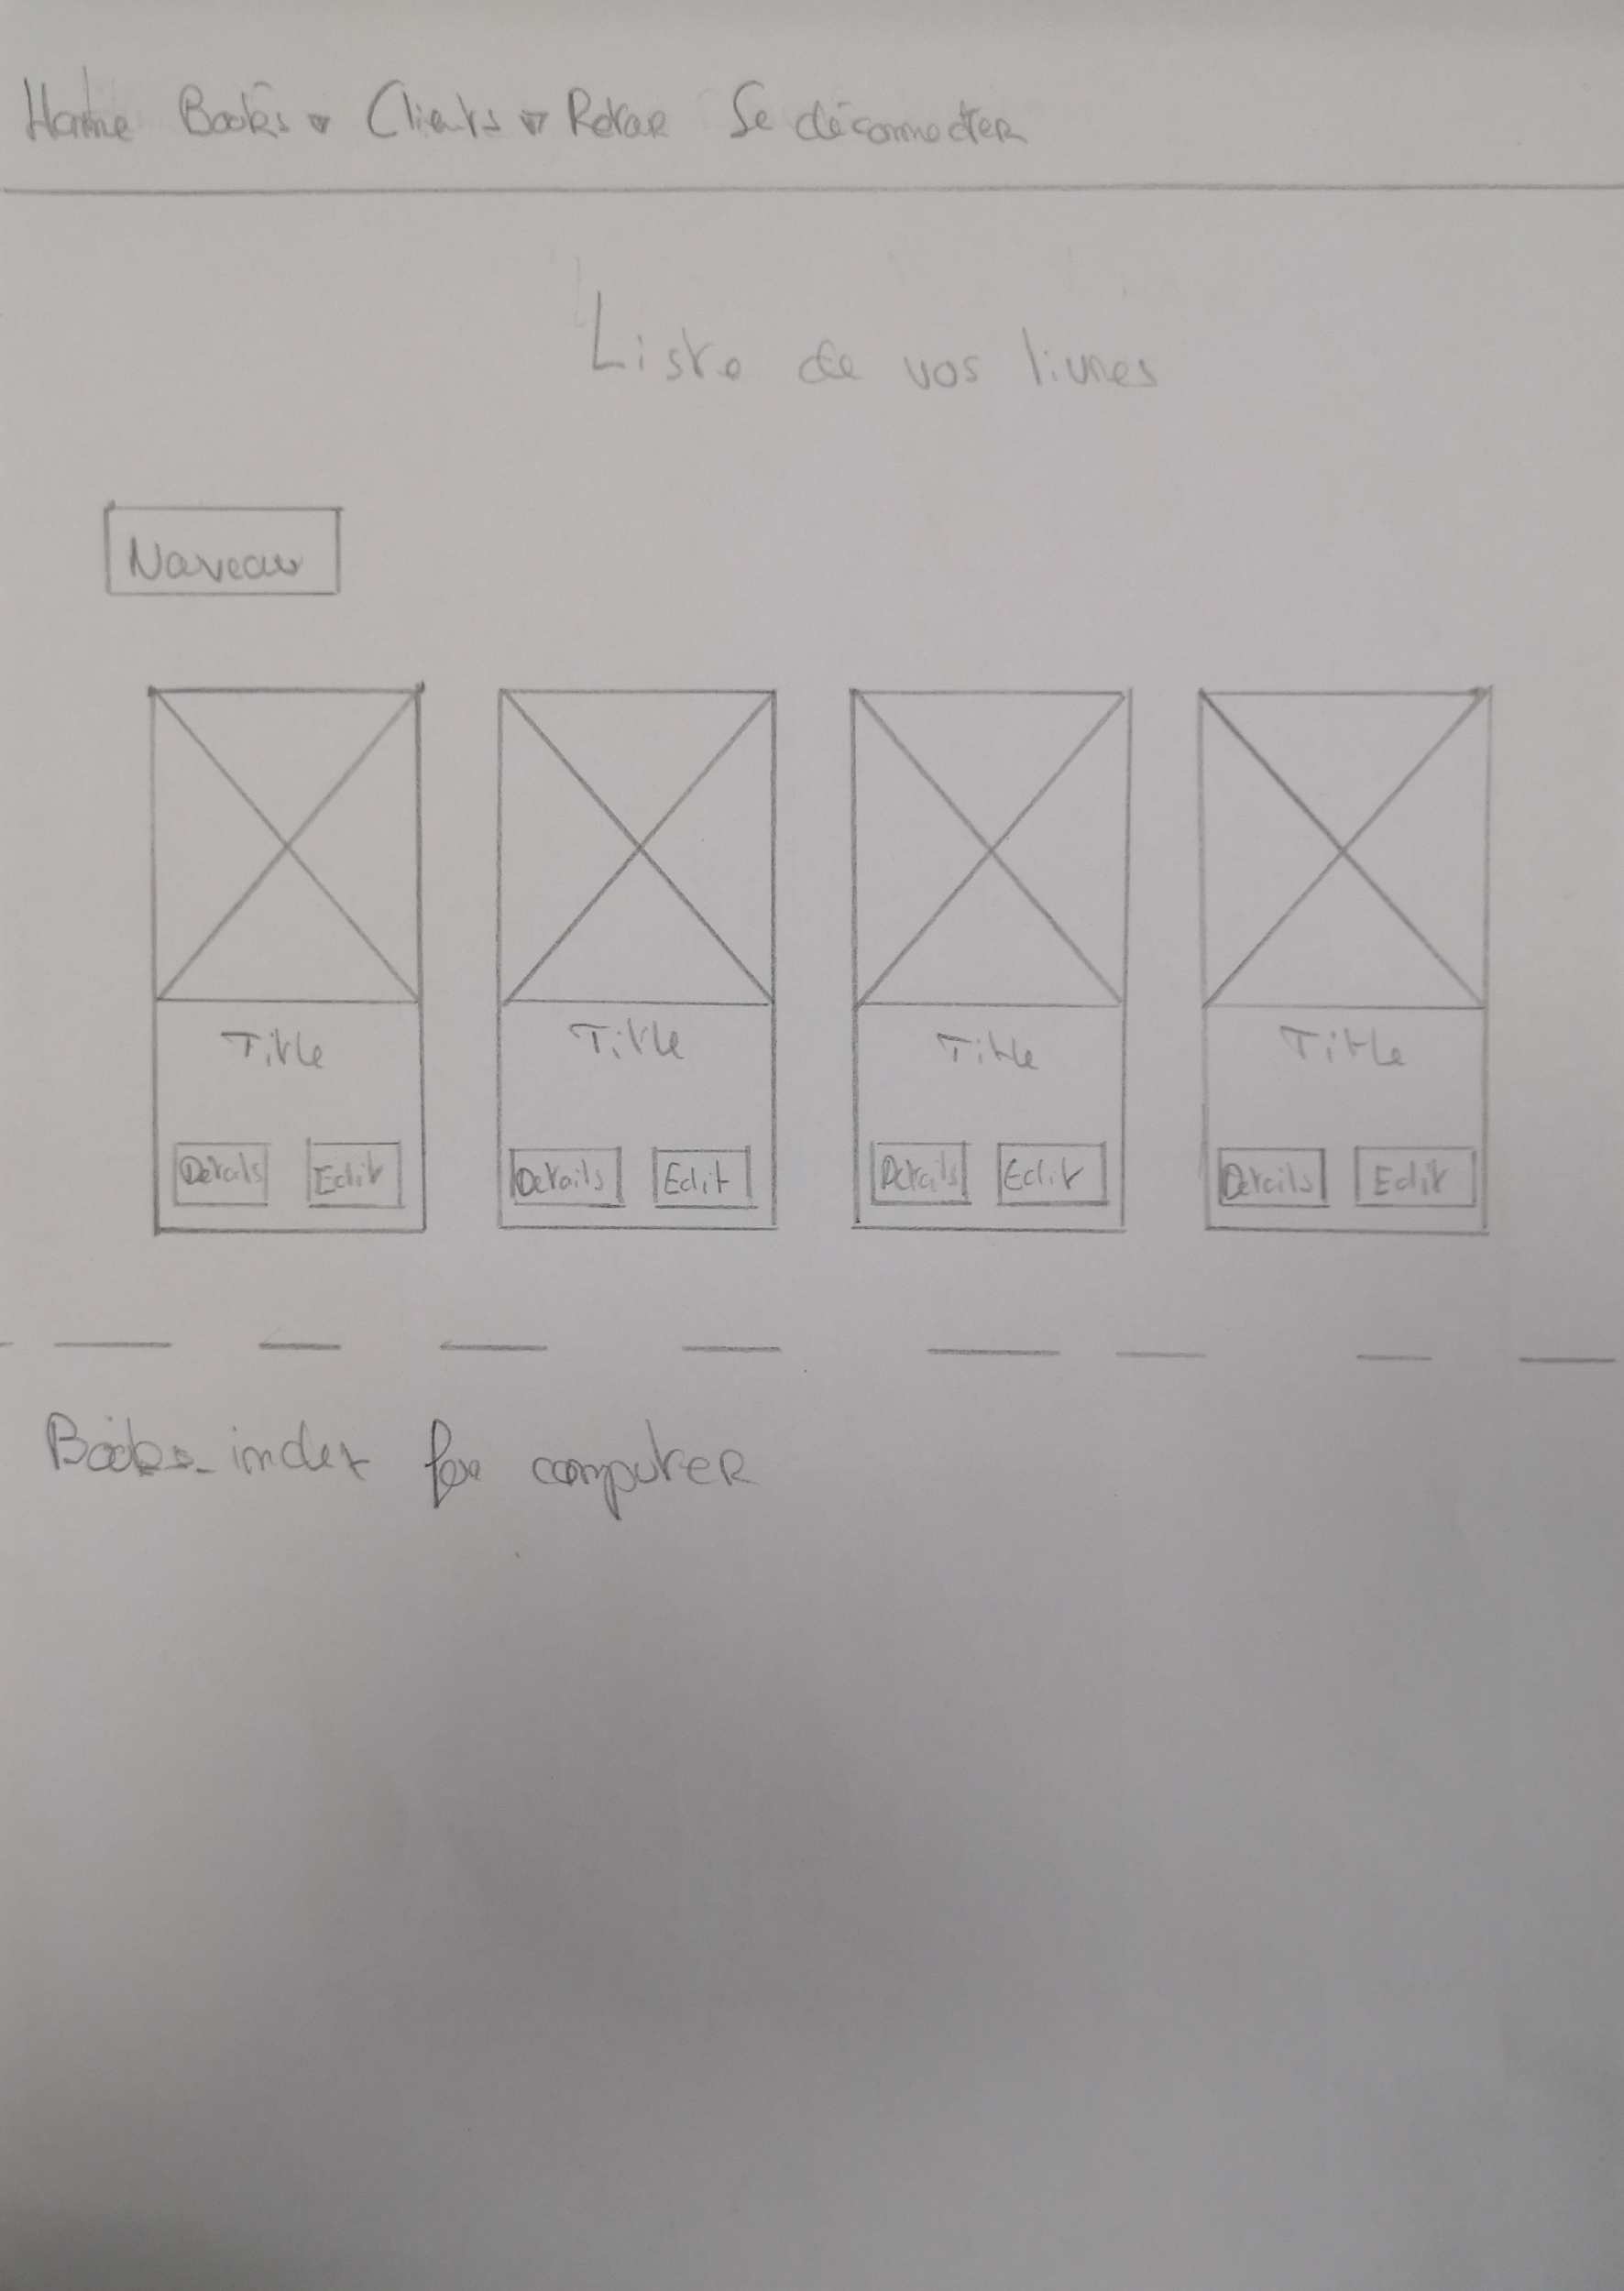 Home Books ▾ Clients ▾ Retar Se déconnecter
Liste de vos livres
Nouveau
Title Title Title Title
Details Edit Details Edit Details Edit Details Edit
Books_index for computer